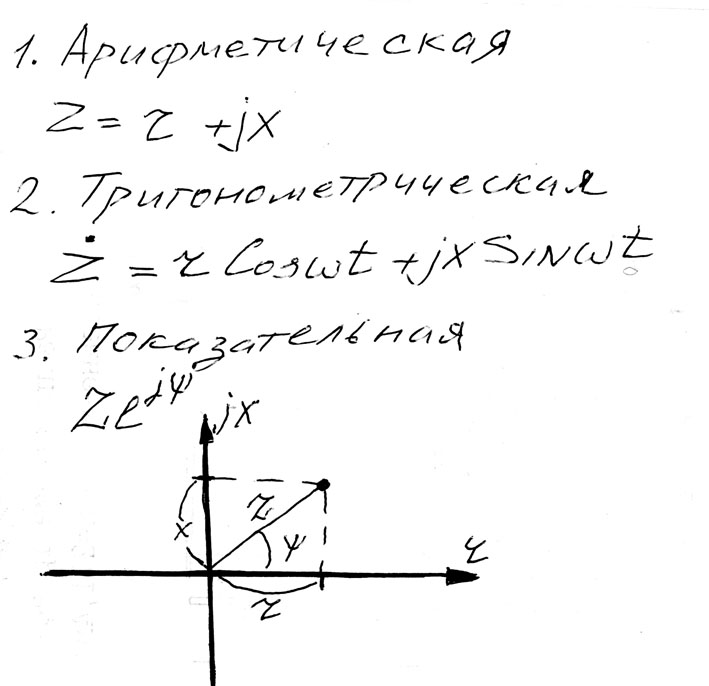 1. Арифметическая
Z = r + jx
2. Тригонометрическая
Ż = r Cosωt + jx Sinωt
3. Показательная
Ze^jψ
jx
x
Z
ψ
r
r